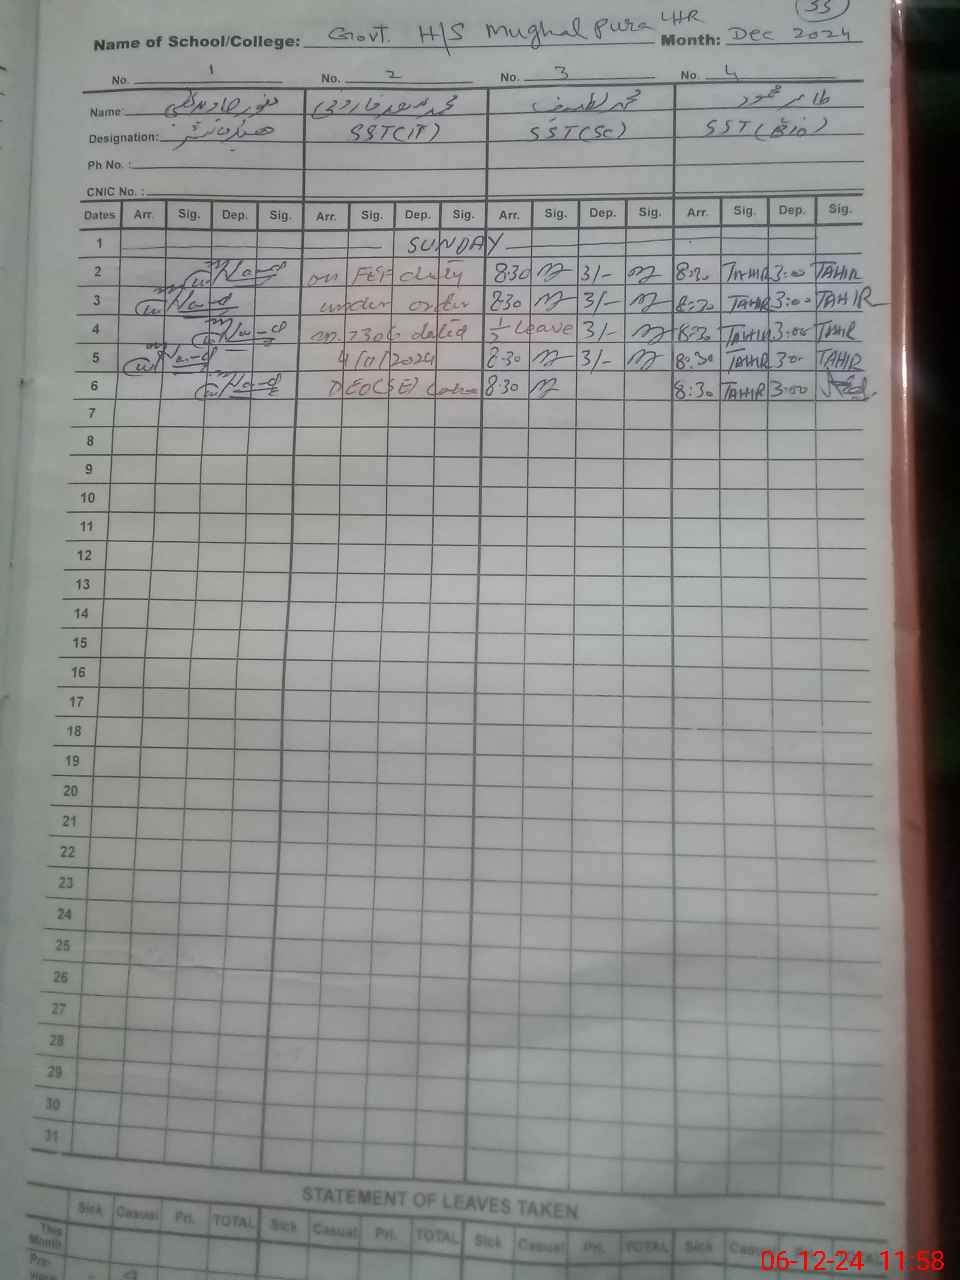 33
Name of School/College: Govt. H/S Mughal Pura LHR Month: Dec 2024
No. 1 No. 2 No. 3 No. 4
Name: محمد لطیف طاہر محمود
Designation: SST(IT) SST(Sc) SST(Bio)
Ph No. :
CNIC No. :
Dates Arr. Sig. Dep. Sig. Arr. Sig. Dep. Sig. Arr. Sig. Dep. Sig. Arr. Sig. Dep. Sig.
1 SUNDAY
2 on duty 8:30 3/- 8:30 TAHIR 3:00 TAHIR
3 under order 8:30 3/- 8:30 TAHIR 3:00 TAHIR
4 no. 7306 dated 1/2 Leave 3/- 8:30 TAHIR 3:00 TAHIR
5 4/11/2024 8:30 3/- 8:30 TAHIR 3:00 TAHIR
6 DEO(SE) Lahore 8:30 8:30 TAHIR 3:00
7
8
9
10
11
12
13
14
15
16
17
18
19
20
21
22
23
24
25
26
27
28
29
30
31
STATEMENT OF LEAVES TAKEN
Sick Casual Pri. TOTAL Sick Casual Pri. TOTAL Sick Casual Pri. TOTAL Sick
This Month
Pre-
06-12-24 11:58